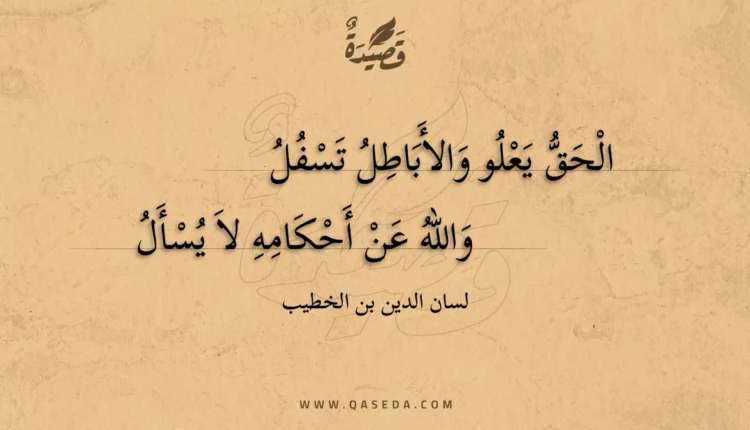 قَصِيدَةٌ
الْحَقُّ يَعْلُو وَالأَبَاطِلُ تَسْفُلُ
وَاللهُ عَنْ أَحْكَامِهِ لاَ يُسْأَلُ
لسان الدين بن الخطيب
WWW.QASEDA.COM